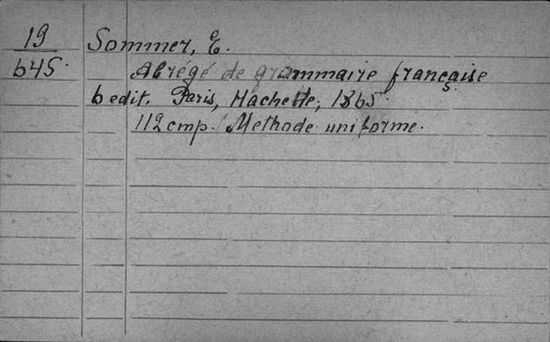 19 Sommer, E.
645. Abrégé de grammaire française
6 edit. Paris, Hachette, 1865.
112 cmp. Methode uniforme.